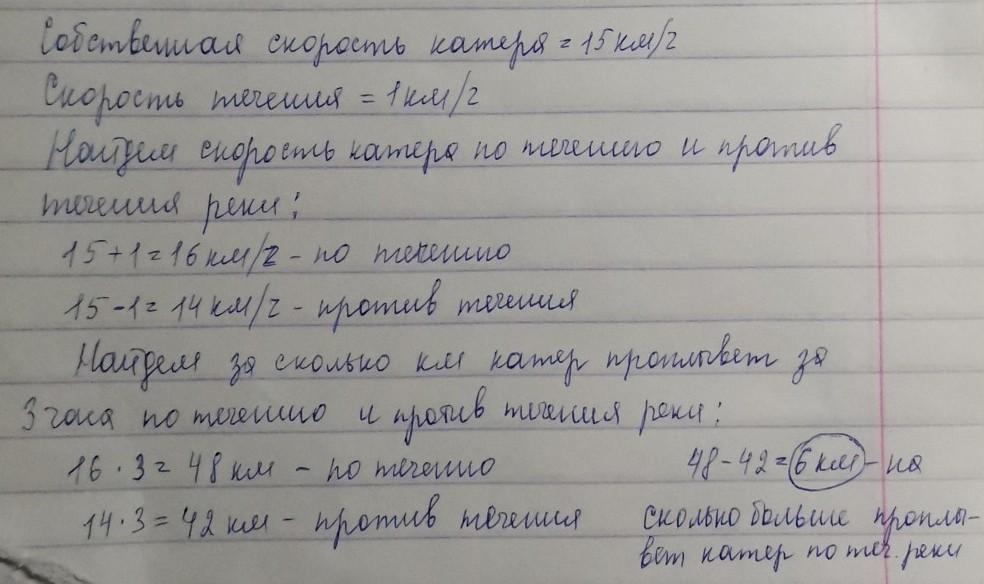 Собственная скорость катера = 15 км/ч
Скорость течения = 1 км/ч
Найдем скорость катера по течению и против
течения реки:
15 + 1 = 16 км/ч - по течению
15 - 1 = 14 км/ч - против течения
Найдем за сколько км катер проплывет за
3 часа по течению и против течения реки:
16 · 3 = 48 км - по течению
14 · 3 = 42 км - против течения
48 - 42 = 6 км - на
сколько больше проплы-
вет катер по теч. реки